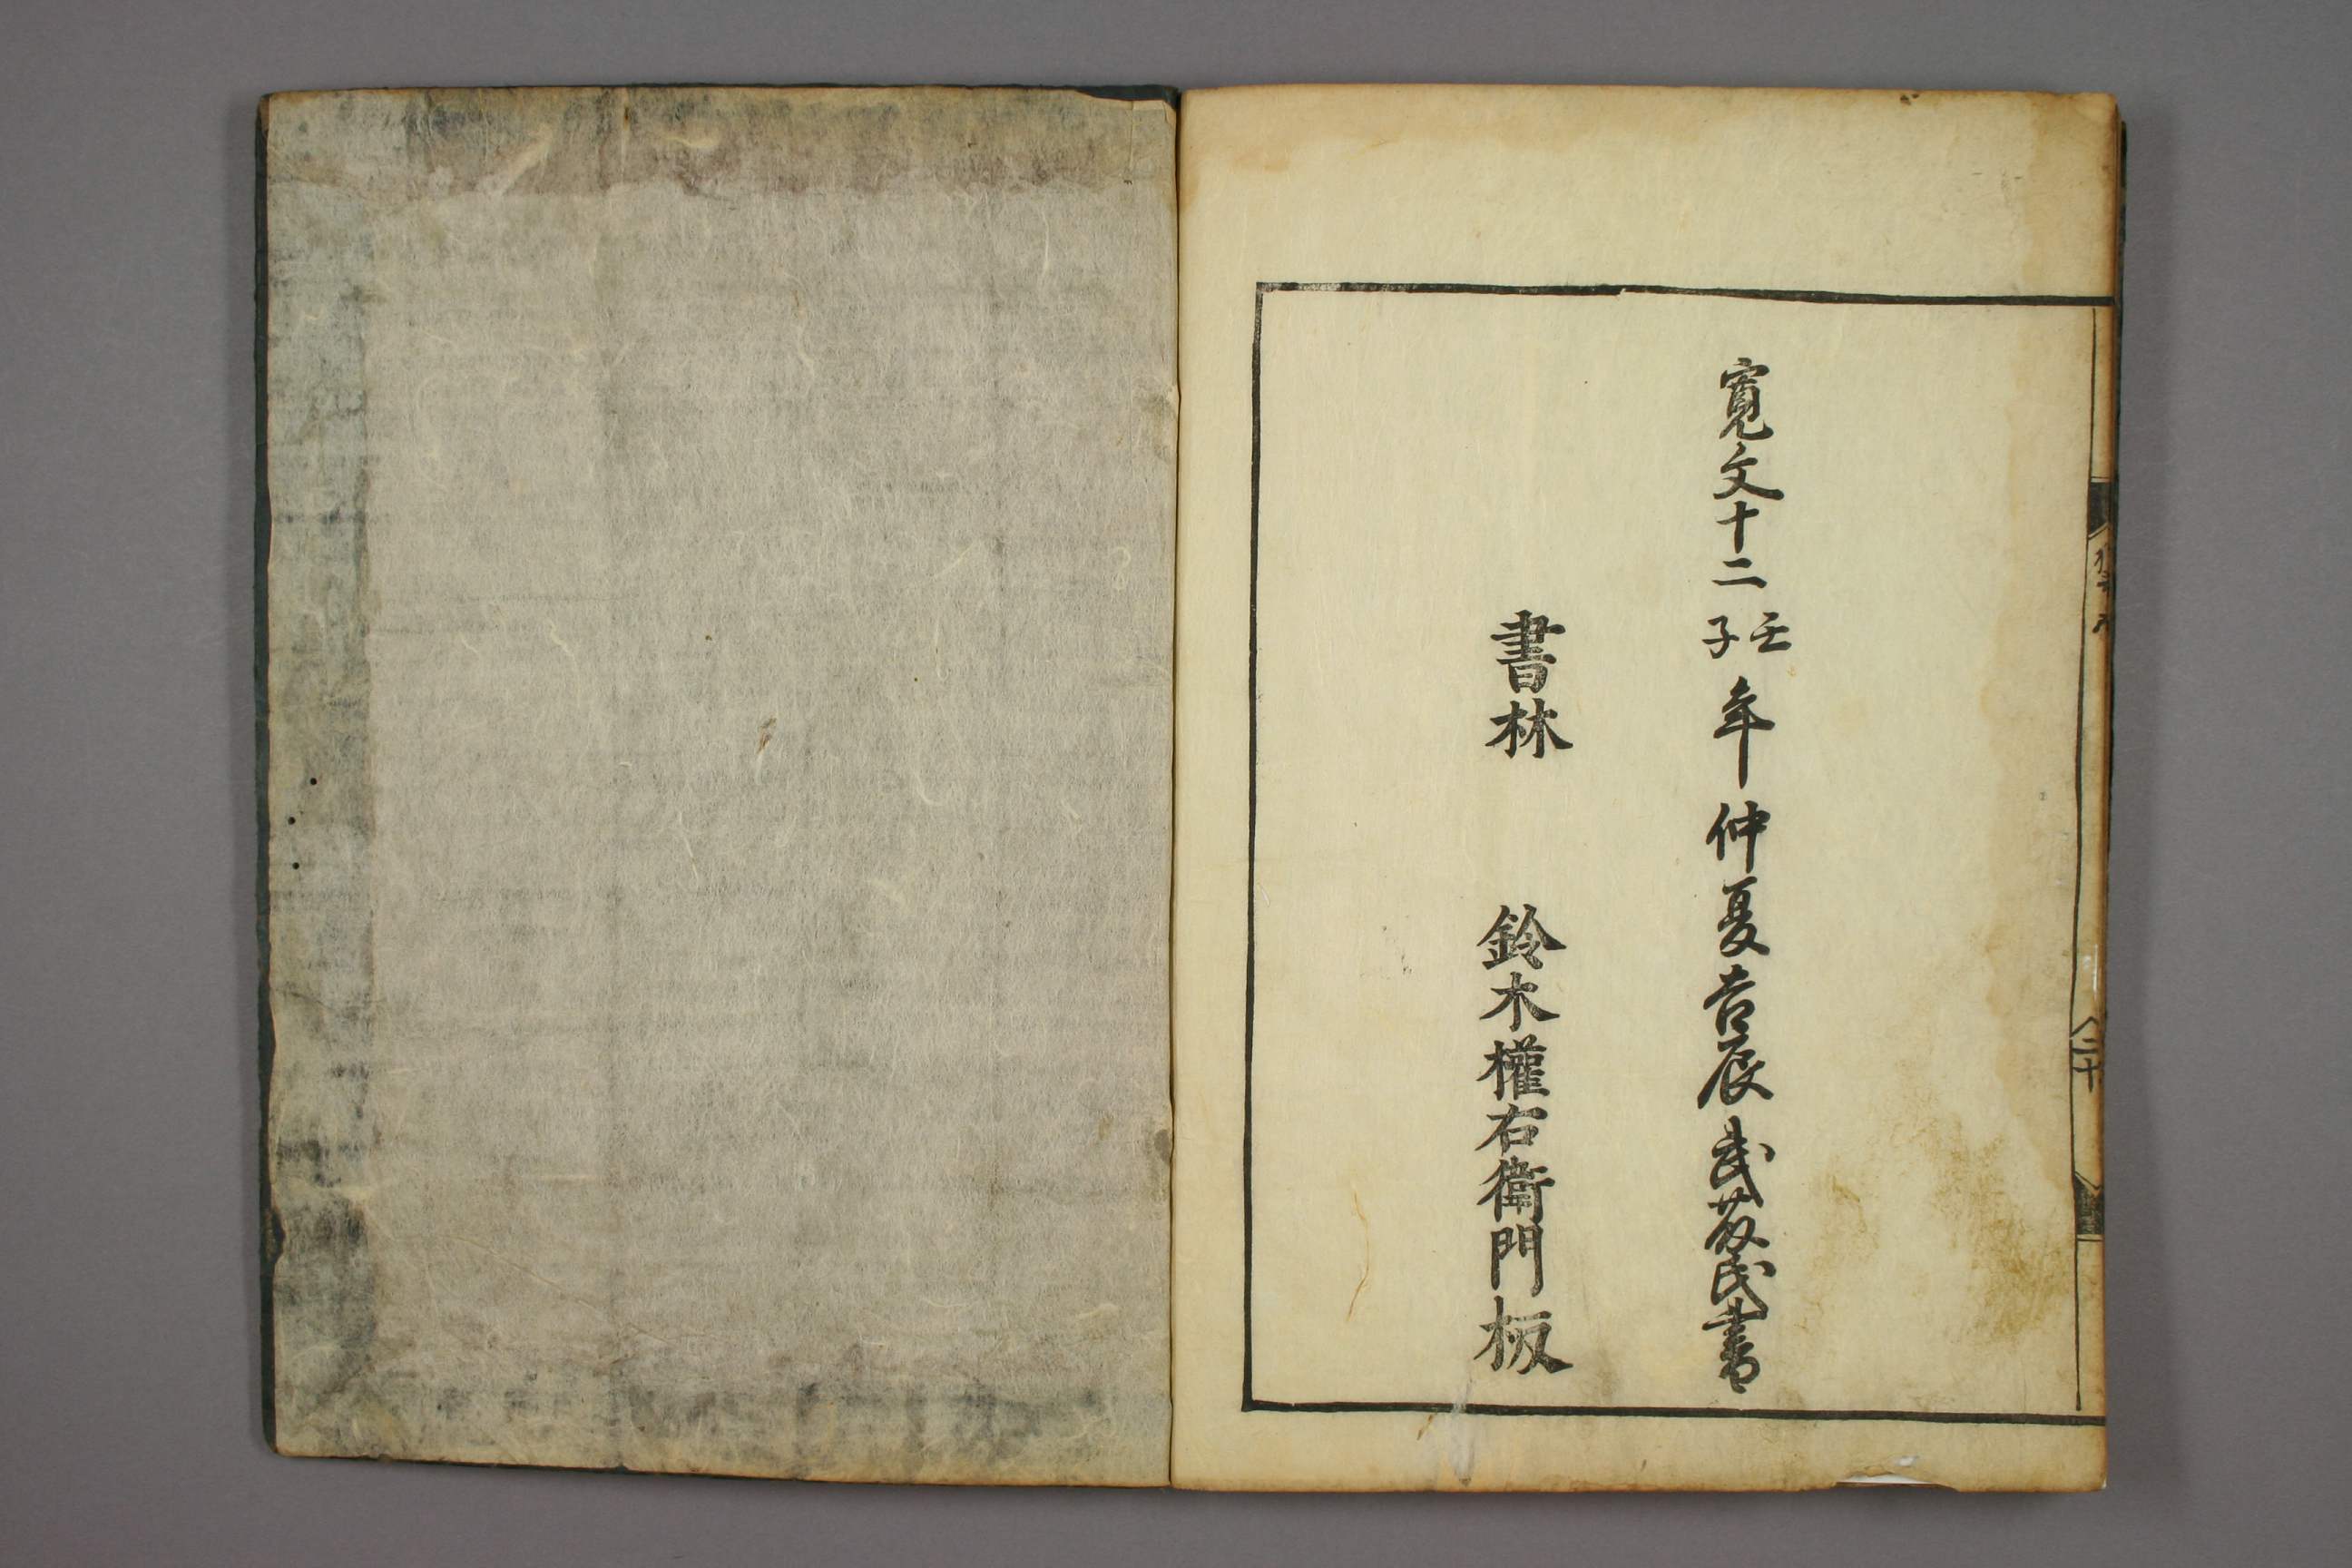 寛文十二壬子年仲夏吉辰武藤氏書
書林 鈴木權右衞門板
二十